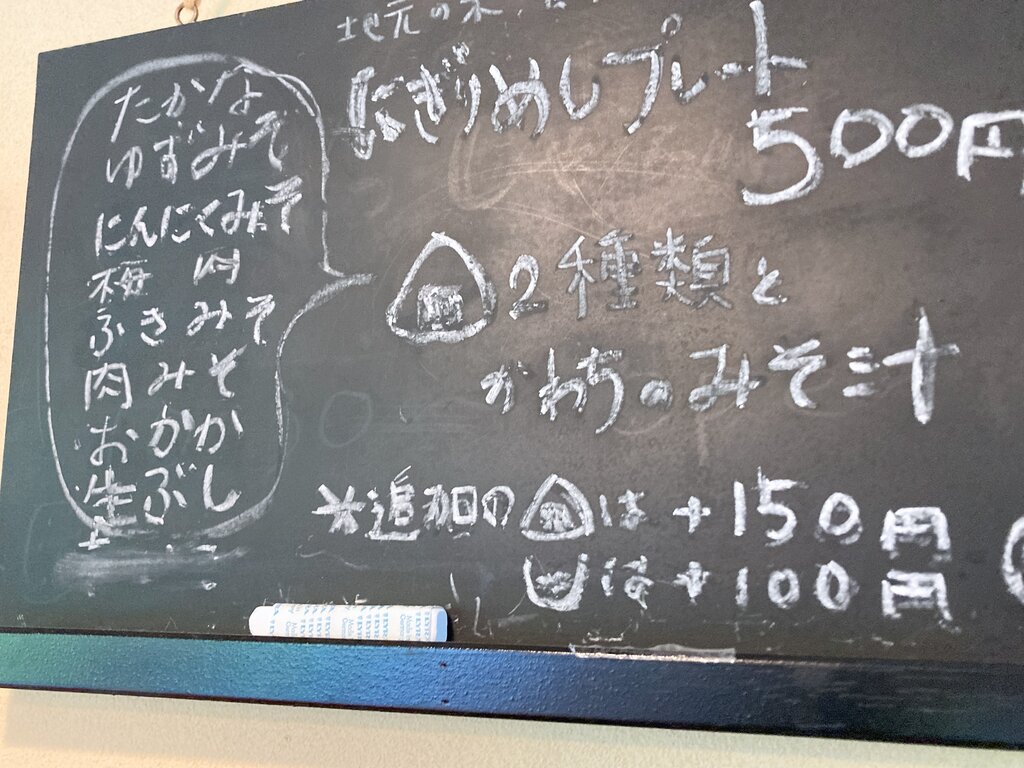 地元の米
にぎりめしプレート
500円
2種類と
かわちのみそ汁
※追加の は +150円
は +100円
たかな
ゆずみそ
にんにくみそ
梅肉
ふきみそ
肉みそ
おかか
生ぶし